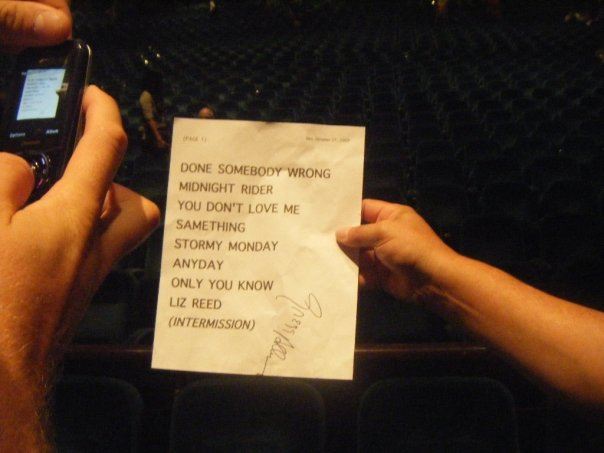 (PAGE 1)
DONE SOMEBODY WRONG
MIDNIGHT RIDER
YOU DON'T LOVE ME
SAMETHING
STORMY MONDAY
ANYDAY
ONLY YOU KNOW
LIZ REED
(INTERMISSION)
Options